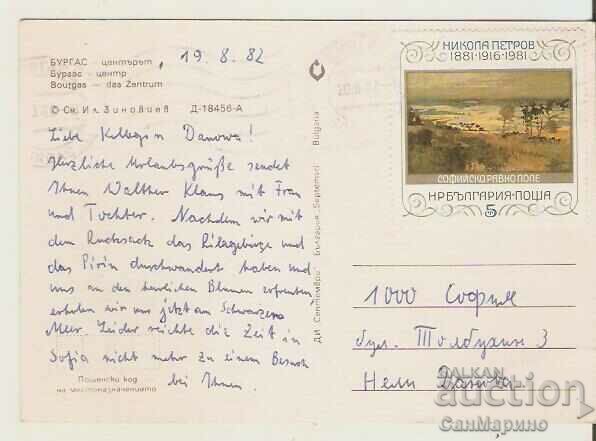 БУРГАС - центърът
Бургас - центр
Bourgas - das Zentrum
19. 8. 82
© Сн. Ил. Зиновиев Д-18456-А
Liebe Kollegin Danowa!
Herzliche Urlaubsgrüße sendet
Ihnen Walther Klaus mit Frau
und Tochter. Nachdem wir mit
dem Rucksack das Rilagebirge und
das Pirin durchwandert haben und
uns an den herrlichen Blumen erfreuten,
erholen wir uns jetzt am Schwarzen
Meer. Leider reichte die Zeit in
Sofia nicht mehr zu einem Besuch
bei Ihnen.
Пощенски код
на местоназначението
ДИ Септември България Septemvri Bulgaria
НИКОЛА ПЕТРОВ
1881·1916·1981
СОФИЙСКО РАВНО ПОЛЕ
НРБЪЛГАРИЯ·ПОЩА
5
1000 София
бул. Толбухин 3
Нели Данова
BALKAN
auction
СанМарино